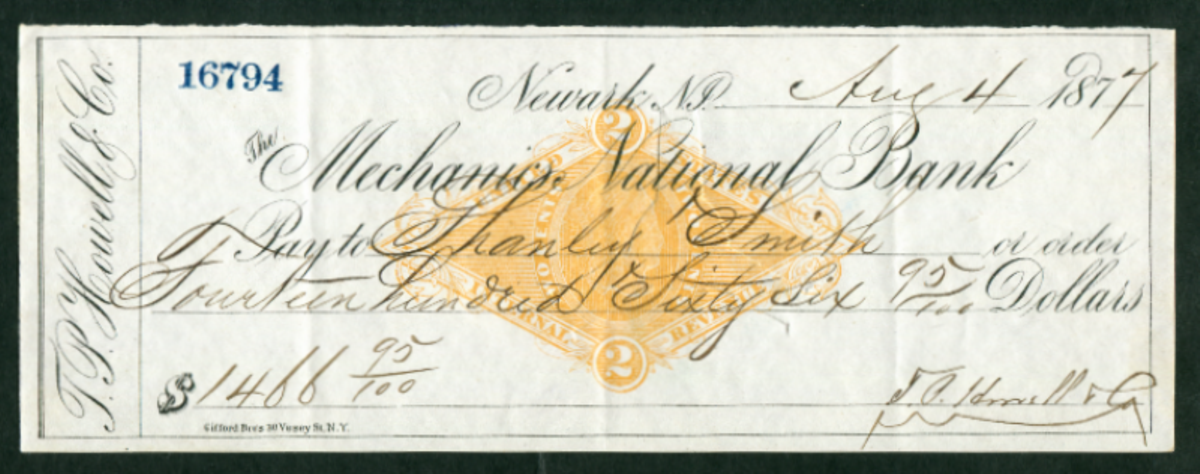 T.P. Howell & Co.
16794
Newark, N.J. Aug 4 1877
The Mechanics National Bank
Pay to Smith or order
Fourteen hundred & Sixty Six 95/100 Dollars
$1466 95/100
T.P. Howell & Co
Gifford Bros 30 Vesey St. N.Y.
2
INTERNAL REVENUE
2